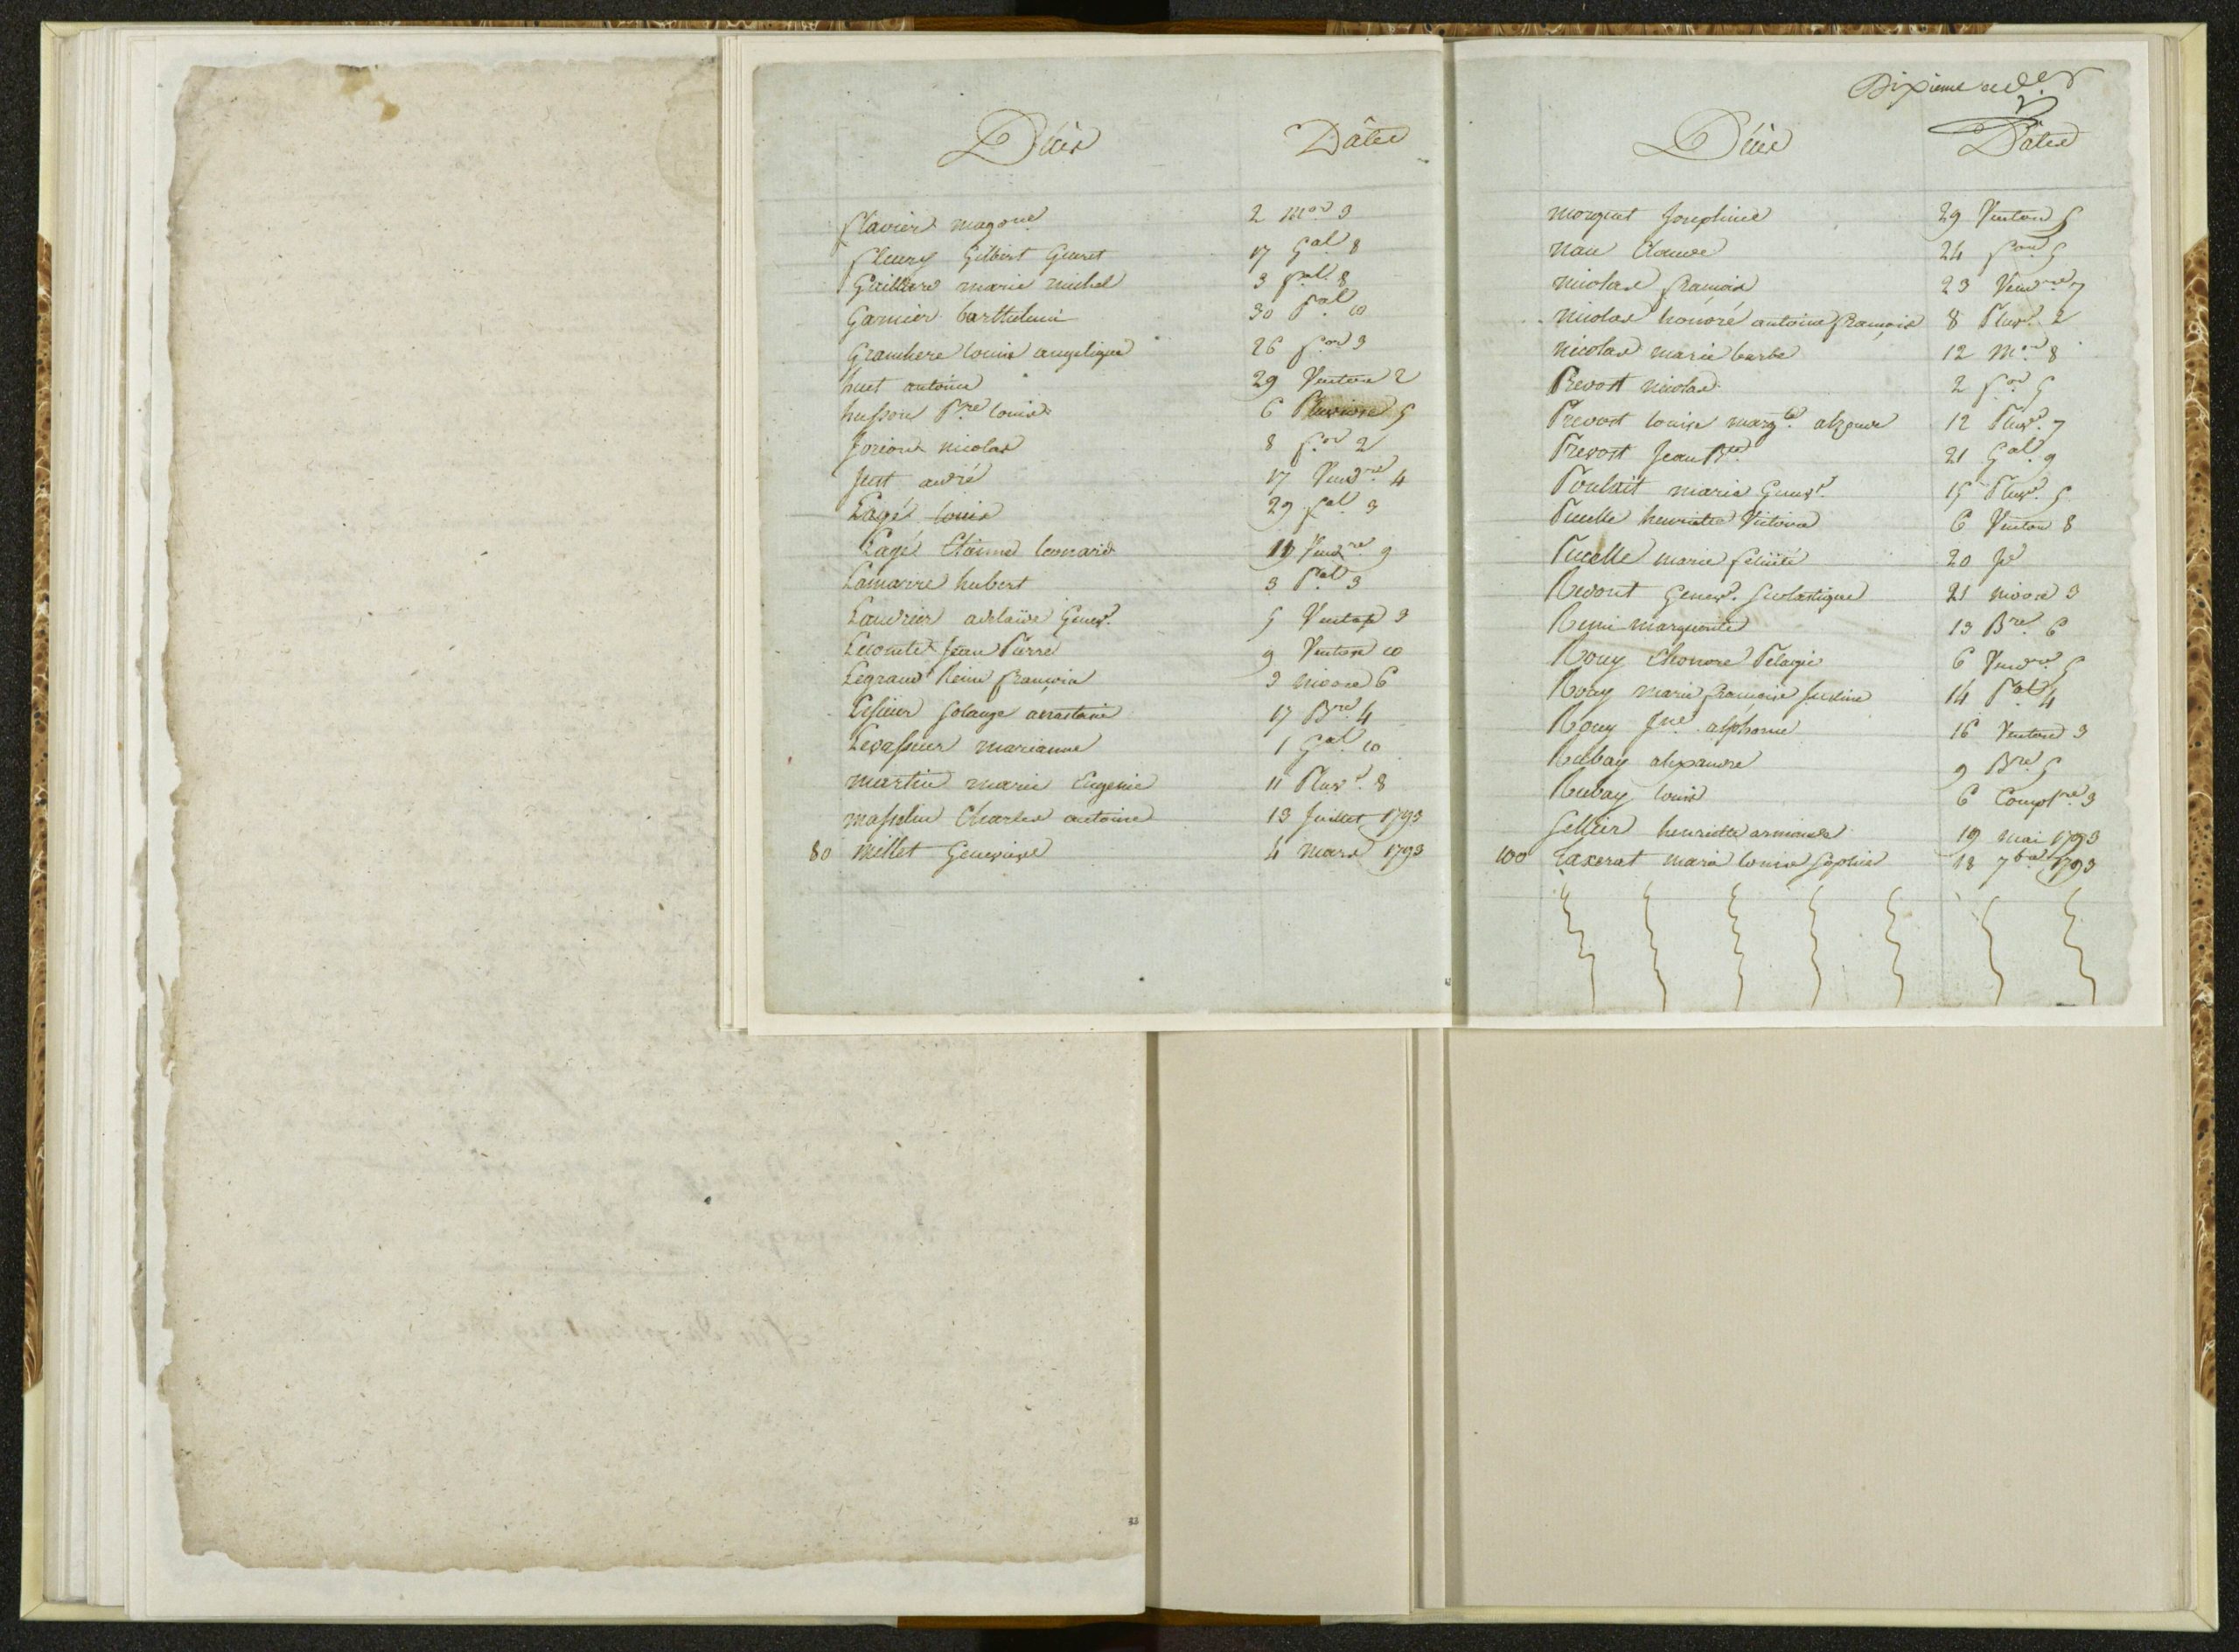 Décès Dates
flavier magone 2 Mor 3
fleury Gilbert Genest 17 Gal 8
Gaillard marie michel 3 fal 8
Garnier barthelemi 30 Pal 10
louise angelique 26 for 3
huet antoine 29 Ventose 2
husson Pre louis 6 Pluviose 5
Jorion nicolas 8 for 2
Just andré 17 Vendre 4
Lagé louis 29 fal 3
Lagé Etienne leonard 11 Vendre 9
Lamarre hubert 3 Pal 3
Landrier adelaïde Genev. 5 Ventose 3
Lecomte Jean Pierre 9 Ventose 10
Legrand Reine françoise 3 nivose 6
Lesieur solange anastasie 17 Bre 4
Levasseur marianne 1 Gal 10
martin marie Eugenie 11 Pluv. 8
masselin Charles antoine 13 Juillet 1793
80 millet Genevieve 4 mars 1793
Dixieme
Décès Dates
morguet Josephine 29 Ventose 5
nau Claude 24 5
nicolas françois 23 Vendre 7
nicolas honoré antoine françois 8 Pluv. 2
nicolas marie barbe 12 Mor 8
Prevost nicolas 2 for 5
Prevost louise margte 12 Pluv. 7
Prevost Jean Bte 21 Gal 9
marie Genev. 15 Pluv. 5
Pucelle henriette Victoire 6 Ventose 8
Pucelle marie félicité 20 Jd
Genev. scolastique 21 nivose 3
Remi marguerite 13 Bre 6
Rouy Eleonore Pelagie 6 Vendre 5
Rouy marie françoise Justine 14 Pal 4
Rouy Jne alphonsine 16 Ventose 3
Rubay alexandre 9 Bre 5
Rubay louis 6 Compre 3
Sellier henriette armande 19 mai 1793
100 Taxerat marie louise sophie 18 7bre 1793